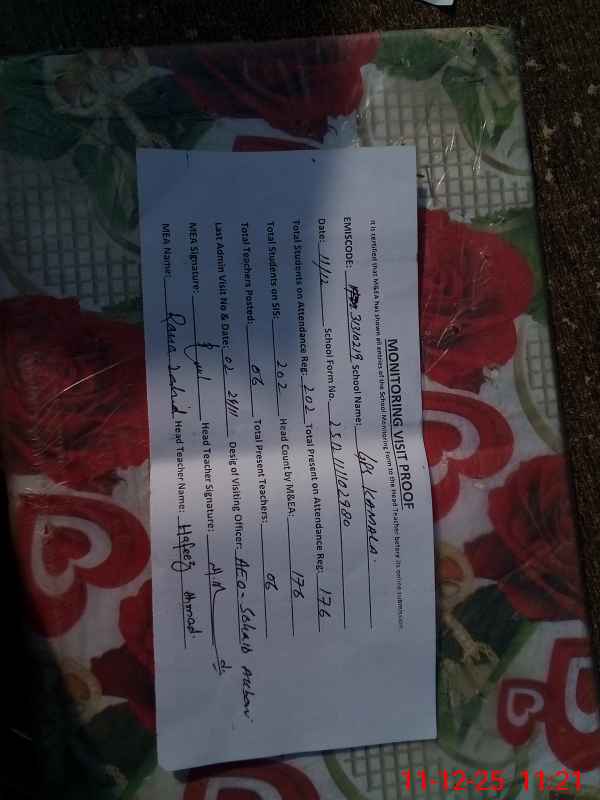 MONITORING VISIT PROOF
It is certified that M&EA has shown all entries of the School Monitoring Form to the Head Teacher before its online submission
EMISCODE: 31310219 School Name: GPS KAMALA.
Date: 11/12 School Form No. 2512111102980
Total Students on Attendance Reg: 202 Total Present on Attendance Reg: 176
Total Students on SIS: 202 Head Count by M&EA: 176
Total Teachers Posted: 06 Total Present Teachers: 06
Last Admin Visit No & Date: 02 29/11 Desig of Visiting Officer: AEO-
MEA Signature: Head Teacher Signature:
MEA Name: Rana Zahid Head Teacher Name: Hafeez Ahmad.
11-12-25 11:21